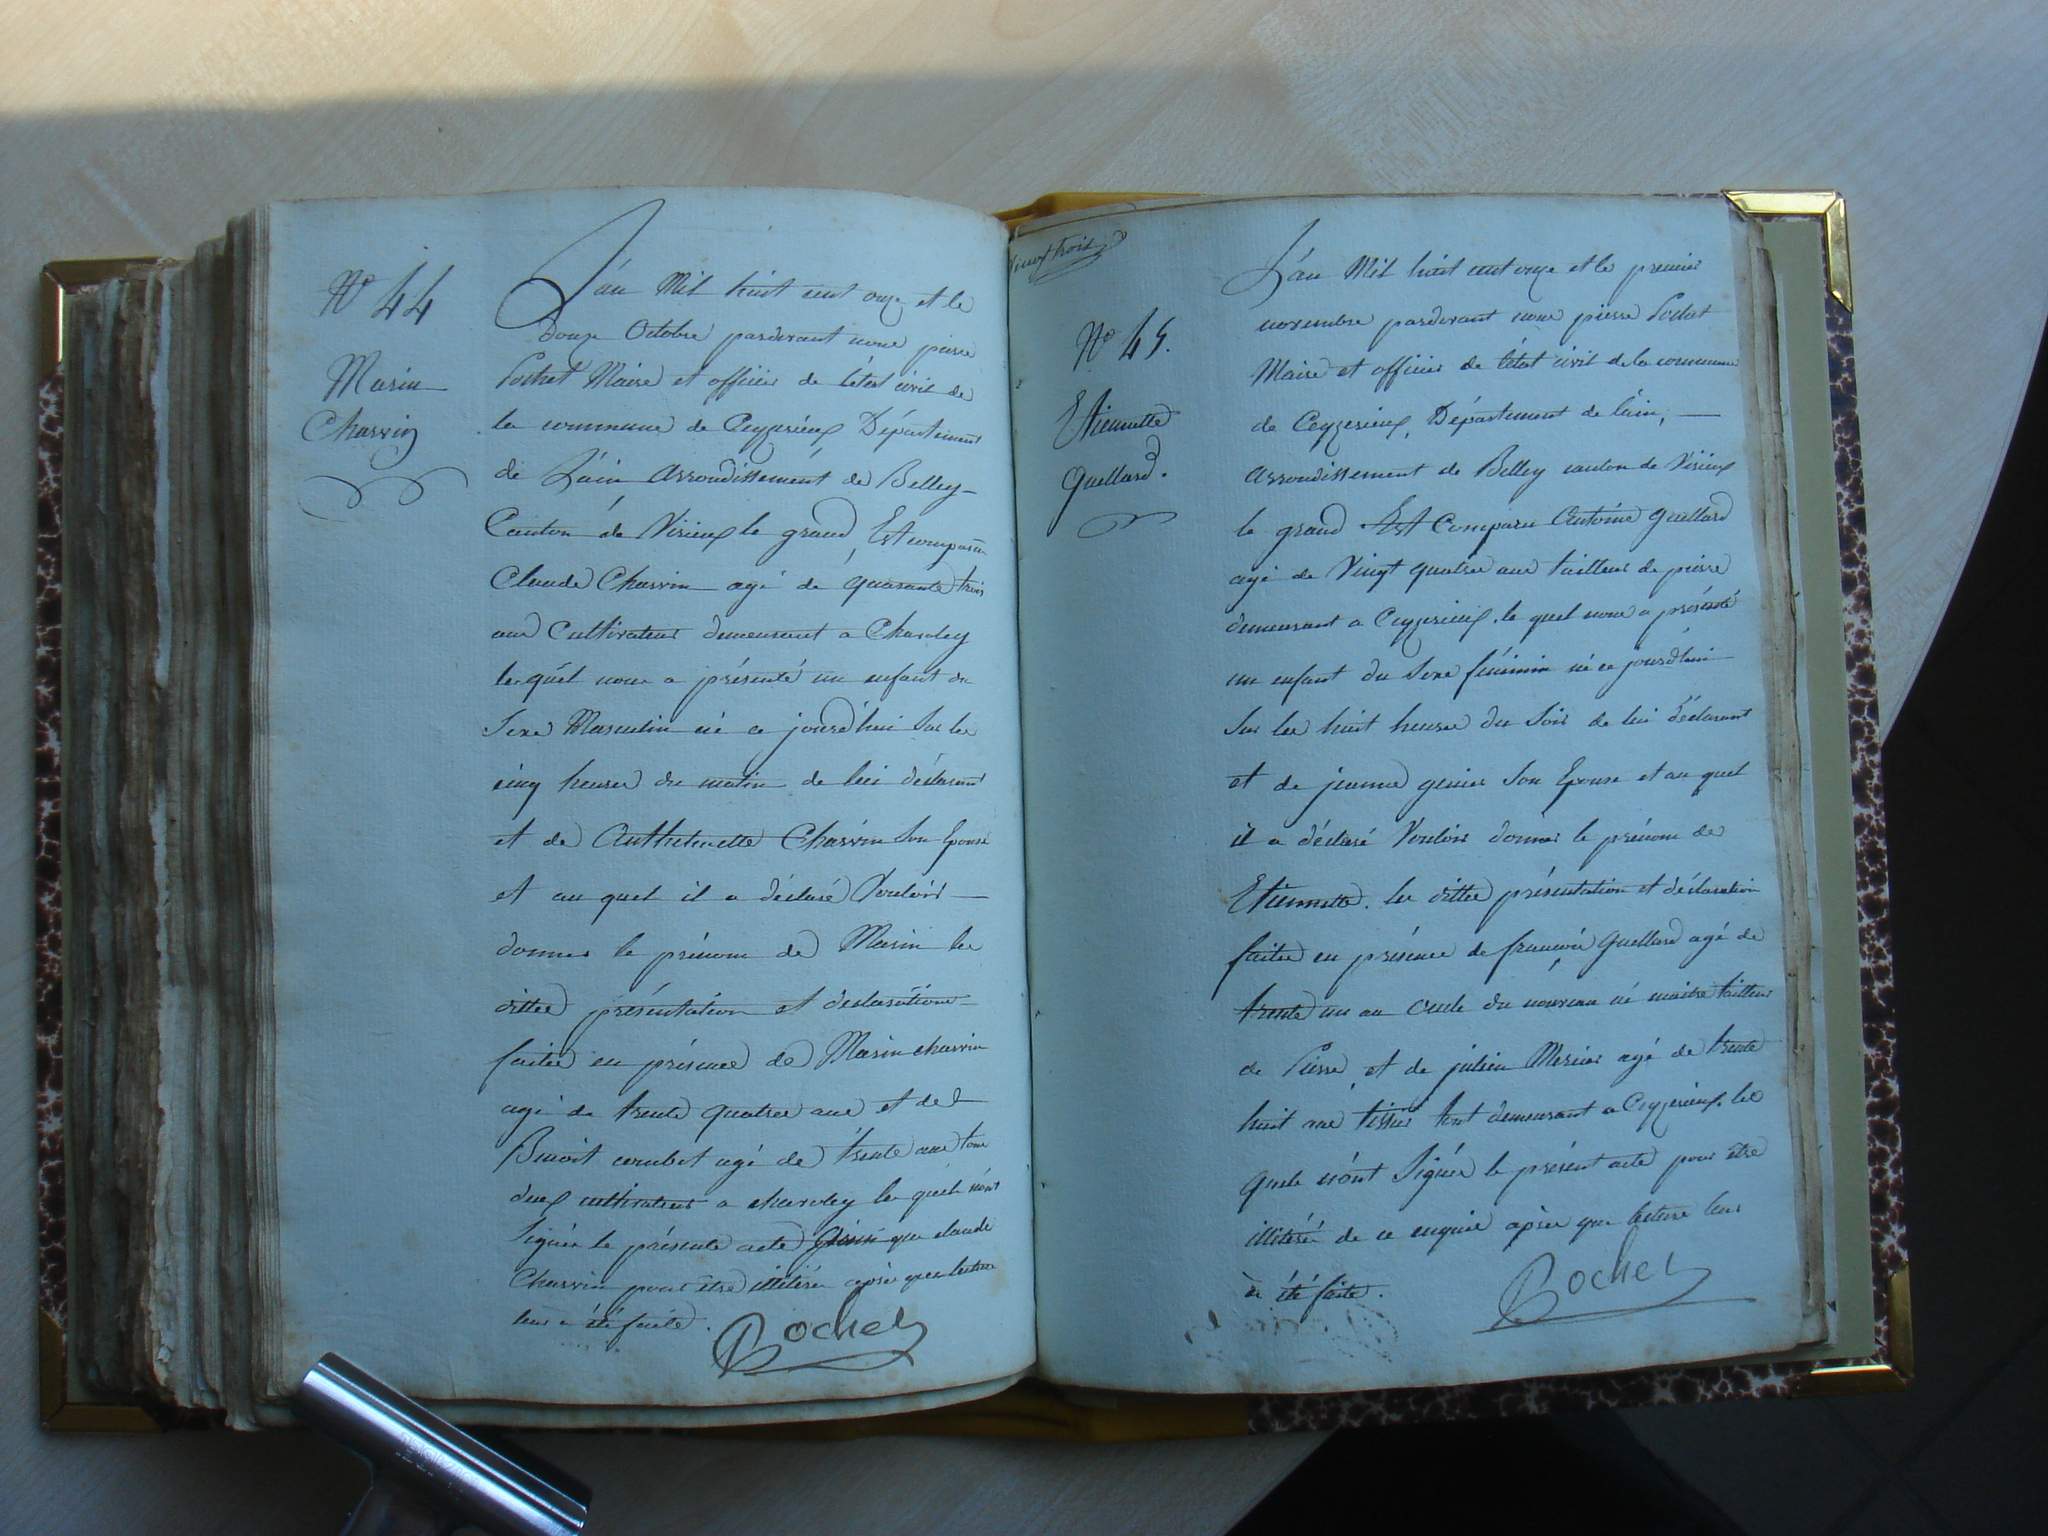 N° 44
Marin
Charvin
L'an Mil huit cent onze et le
douze Octobre pardevant nous pierre
Pochet Maire et officier de l'état civil de
la commune de Ceyzerieux Département
de L'ain Arrondissement de Belley
Canton de Virieux le grand, Est comparu
Claude Charvin agé de quarante trois
ans Cultivateur demeurant a Charoley
lequel nous a présenté un enfant du
Sexe Masculin né ce jourd'hui Sur les
cinq heures du matin de lui déclarant
et de Anthelmette Charvin Son Epouse
et au quel il a déclaré Vouloir
donner le prénom de Marin les
dittes présentation et déclarations
faites en présence de Marin charvin
agé de trente quatre ans et de
Benoit combet agé de trente ans tous
deux cultivateurs a charoley les quels n'ont
Signés le présente acte que claude
Charvin pour être illitérés après que lecture
leur a été faite.
Pochet
vingt trois
N° 45.
Etiennette
Guellard.
L'an Mil huit cent onze et le premier
novembre pardevant nous pierre Pochet
Maire et officier de l'état civil de la commune
de Ceyzerieux, Département de l'ain,
Arrondissement de Belley canton de Virieux
le grand Est Comparu Antoine Guellard
agé de Vingt quatre ans tailleur de pierre
demeurant a Ceyzerieux. le quel nous a présenté
un enfant du Sexe féminin né ce jourd'hui
Sur les huit heures du Soir de lui déclarant
et de jeanne genier Son Epouse et au quel
il a déclaré Vouloir donner le prénom de
Etiennette. les dittes présentation et déclaration
faites en présence de françois Guellard agé de
trente un an Oncle du nouveau né maitre tailleur
de Pierre, et de julien Mercier agé de trente
huit ans tissier tout demeurant a Ceyzerieux. les
quels n'ont Signés le présent acte pour être
illitérés de ce enquis après que lecture leur
à été faite.
Pochet